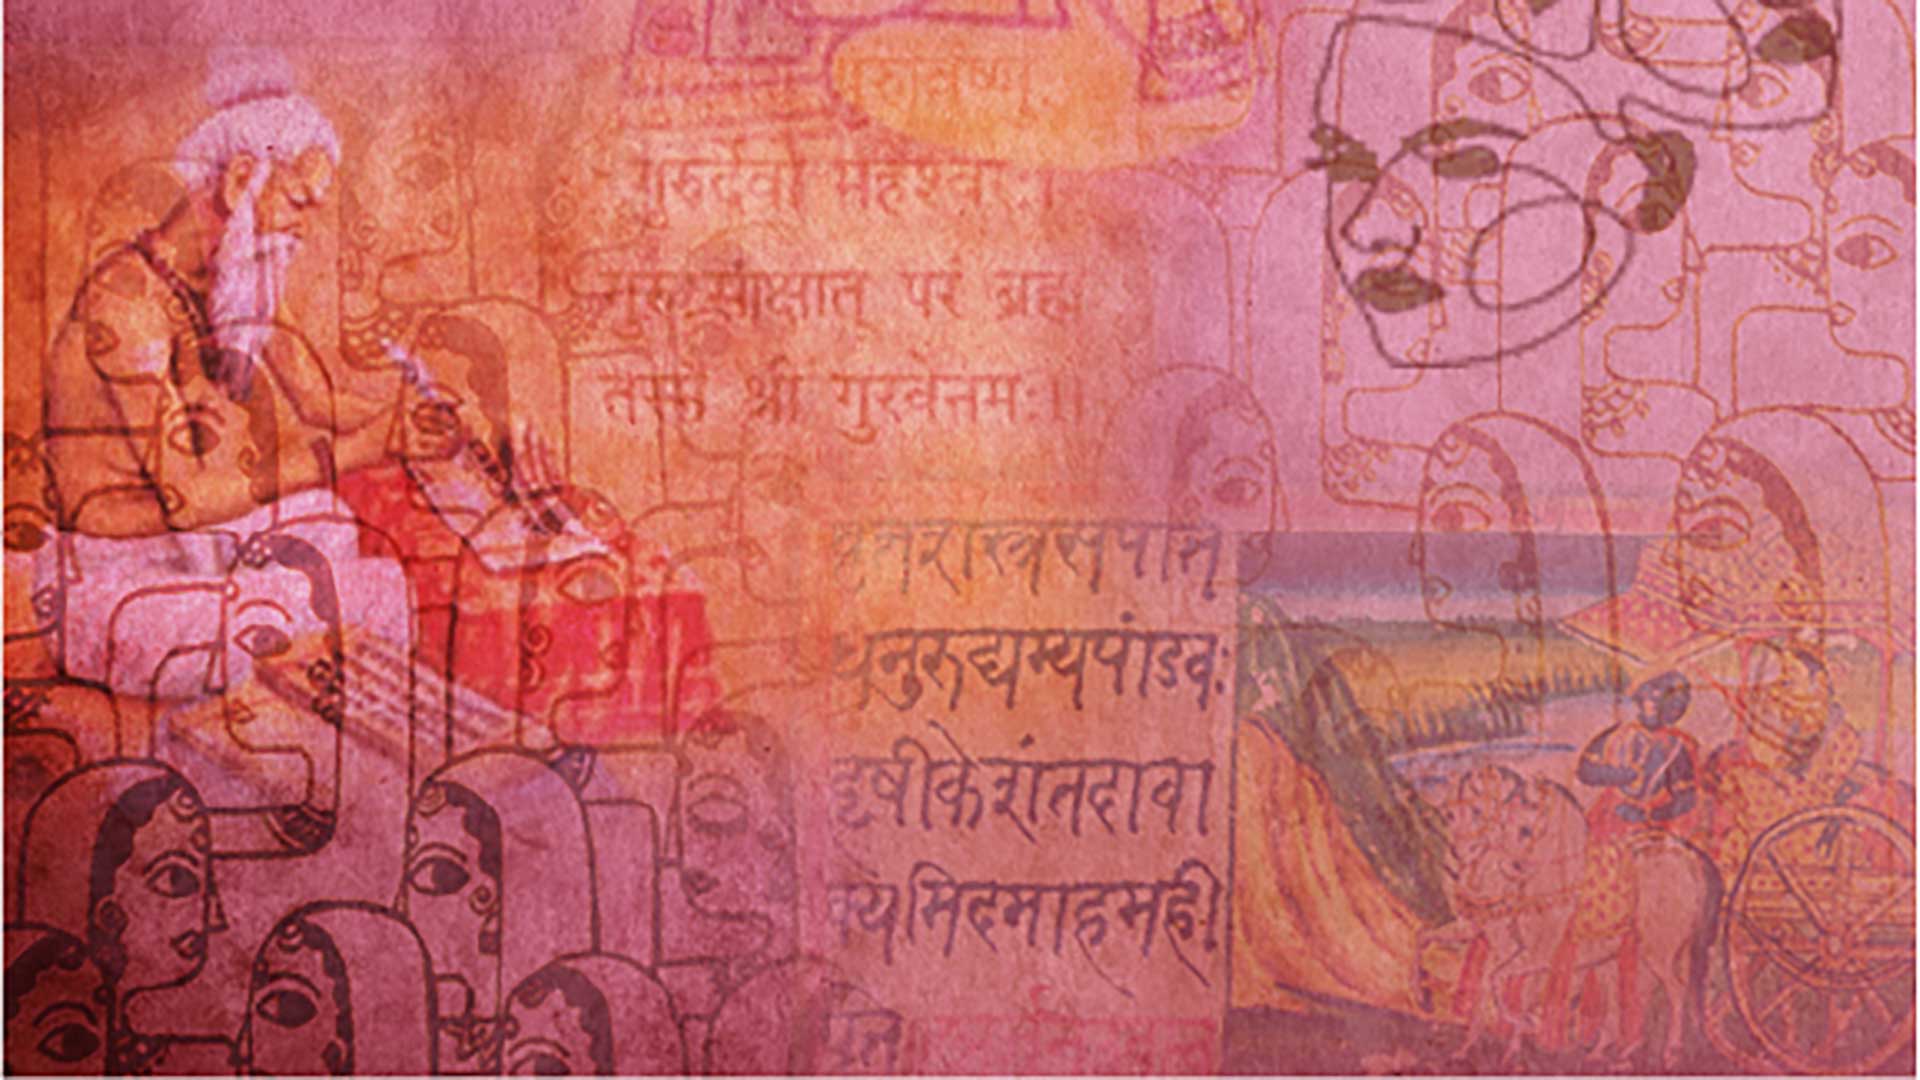 गुरुर्विष्णु
गुरुदेवो महेश्वर
गुरु साक्षात् पर ब्रह्म
तस्मै श्री गुरवेनमः॥
धनुरुद्यम्यपांडवः
हृषीकेशंतदावा
क्यमिदमाहमही